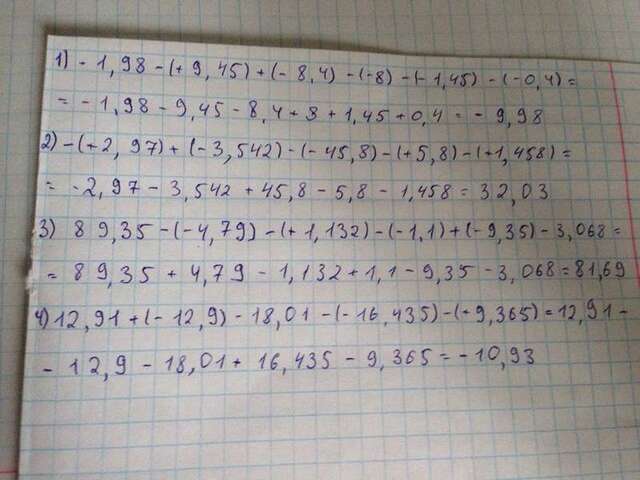 1) - 1,98 - (+ 9,45) + (- 8,4) - (-8) - (- 1,45) - (-0,4) =
= - 1,98 - 9,45 - 8,4 + 8 + 1,45 + 0,4 = - 9,98
2) - (+2,97) + (-3,542) - (-45,8) - (+5,8) - (+1,458) =
= -2,97 - 3,542 + 45,8 - 5,8 - 1,458 = 32,03
3) 89,35 - (-4,79) - (+1,132) - (-1,1) + (-9,35) - 3,068 =
= 89,35 + 4,79 - 1,132 + 1,1 - 9,35 - 3,068 = 81,69
4) 12,91 + (-12,9) - 18,01 - (-16,435) - (+9,365) = 12,91 -
- 12,9 - 18,01 + 16,435 - 9,365 = -10,93